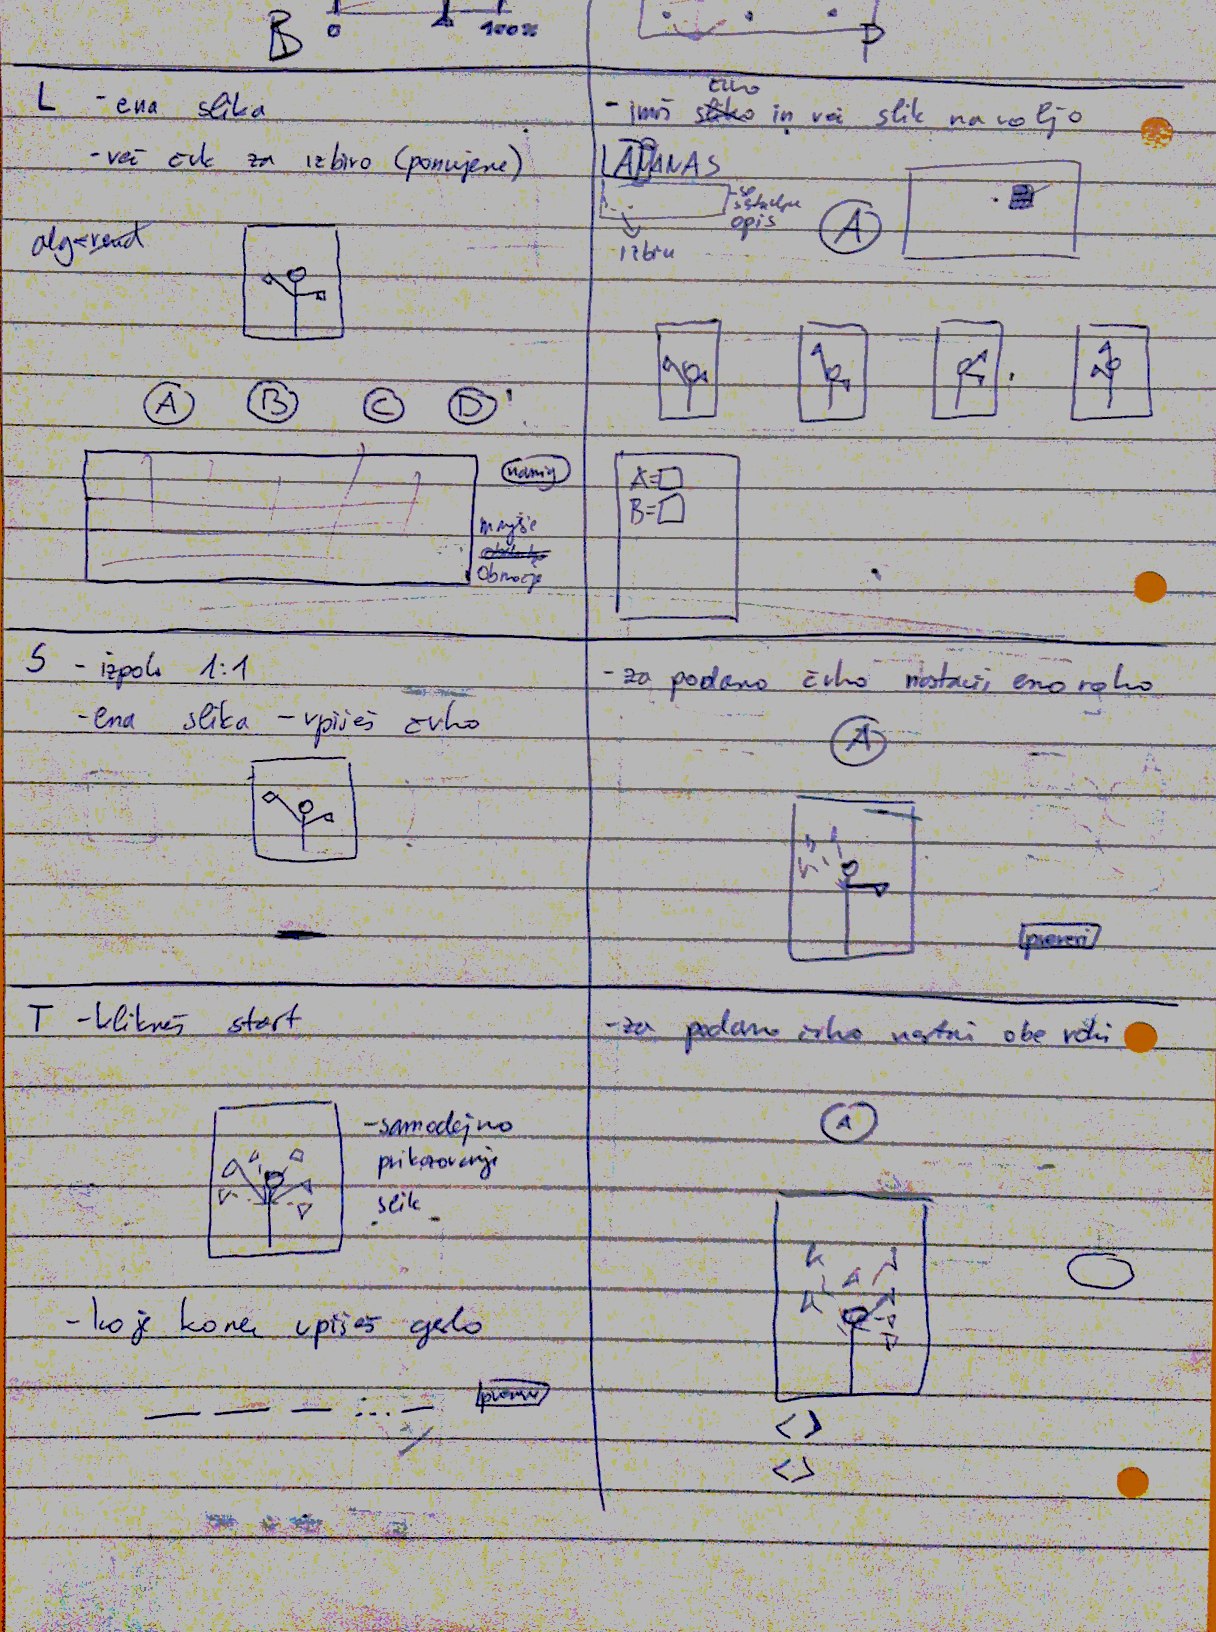 B 0 100%
P
L - ena slika
- več črk za izbiro (ponujene)
A B C D
namig
manjše
območje
črko
- imaš sliko in več slik na voljo
ANANAS
opis
izbira
A
A=
B=
S - izpolni 1:1
- ena slika - vpišeš črko
- za podano črko nastaviš eno roko
A
preveri
T - klikneš start
- samodejno
prikazovanje
slik
- ko je konec vpišeš geslo
preveri
- za podano črko nastaviš obe roki
A
< >
< >